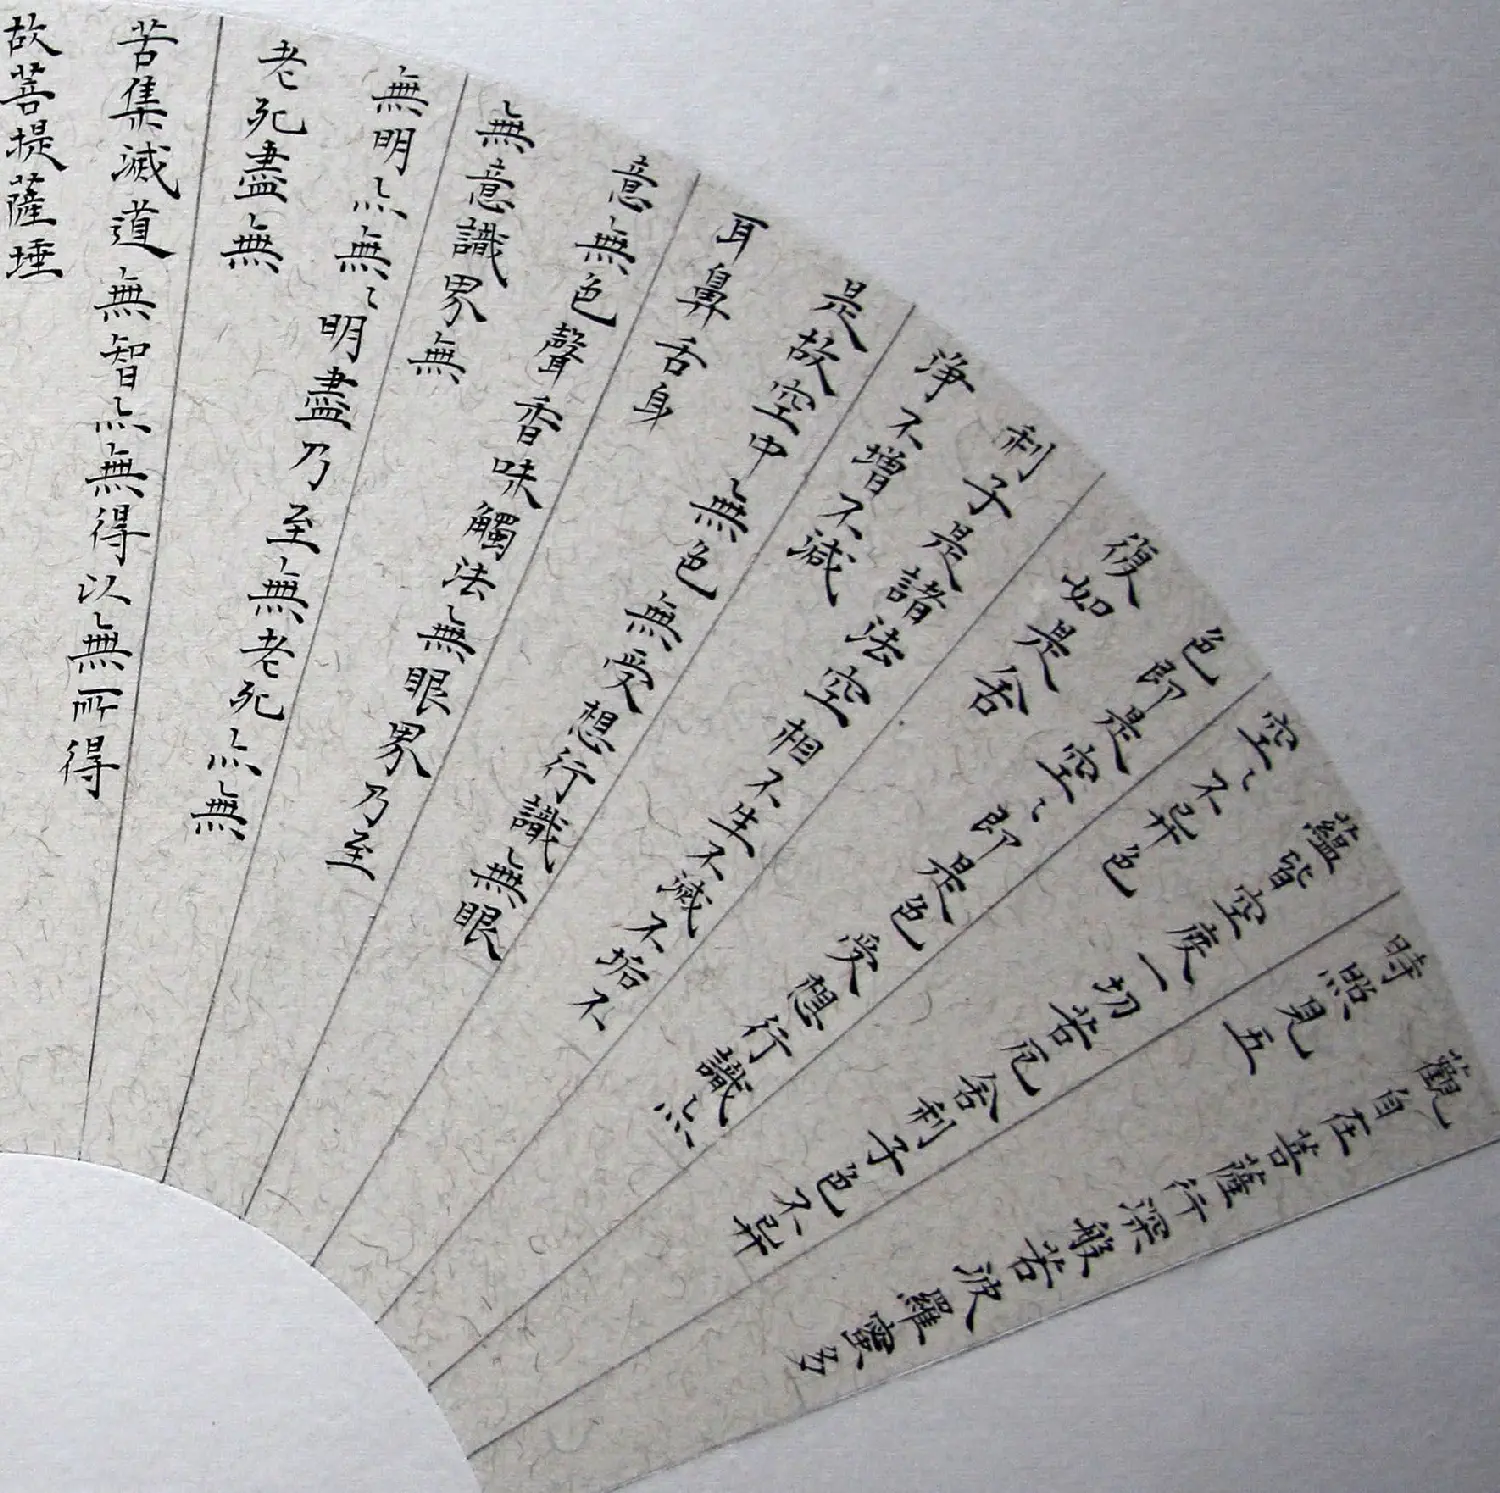 觀自在菩薩行深般若波羅蜜多
時照見五
蘊皆空度一切苦厄舍利子色不异
空〻不异色
色即是空〻即是色受想行識亦
復如是舍
利子是諸法空相不生不滅不垢不
淨不增不減
是故空中無色無受想行識無眼
耳鼻舌身
意無色聲香味觸法無眼界乃至
無意識界無
無明亦無〻明盡乃至無老死亦無
老死盡無
苦集滅道無智亦無得以無所得
故菩提薩埵